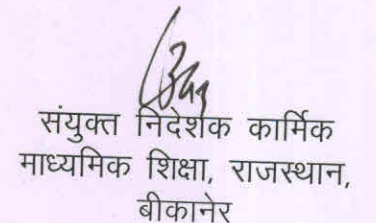 संयुक्त निदेशक कार्मिक
माध्यमिक शिक्षा, राजस्थान,
बीकानेर